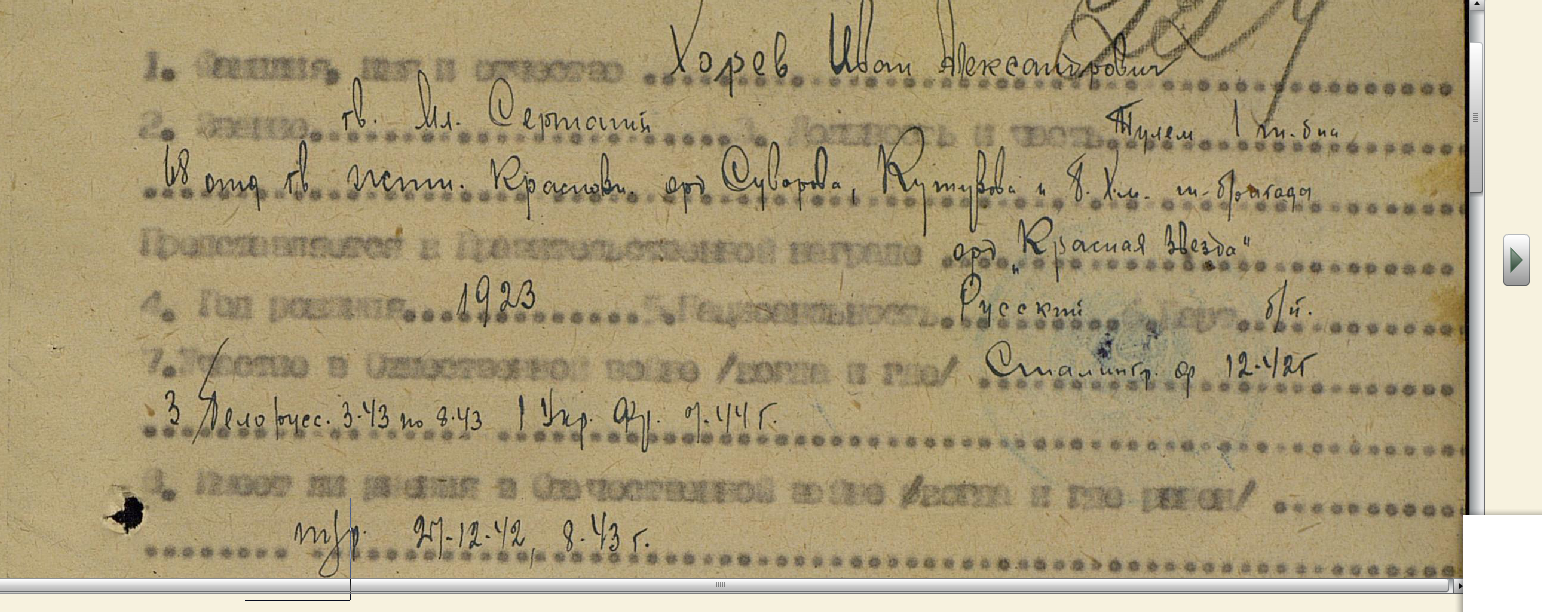 224
1. Фамилия, имя и отчество Хорев Иван Александрович
2. Звание гв. Мл. Сержант 3. Должность и часть 1 т. б-на
68 отд гв Краснозн. орд Суворова, Кутузова и Б. Хм. т-бригада
Представляется к Правительственной награде орд „Красная Звезда"
4. Год рождения 1923 5. Национальность Русский 6. Парт. б/п.
7. Участие в Отечественной войне /когда и где/ Сталингр. ф 12-42г
3 Белорусс. 3-43 по 8.43 1 Укр. Фр. 44г.
8. Имеет ли ранения в Отечественной войне /когда и где ранен/
т/р. 27-12-42, 8-43 г.